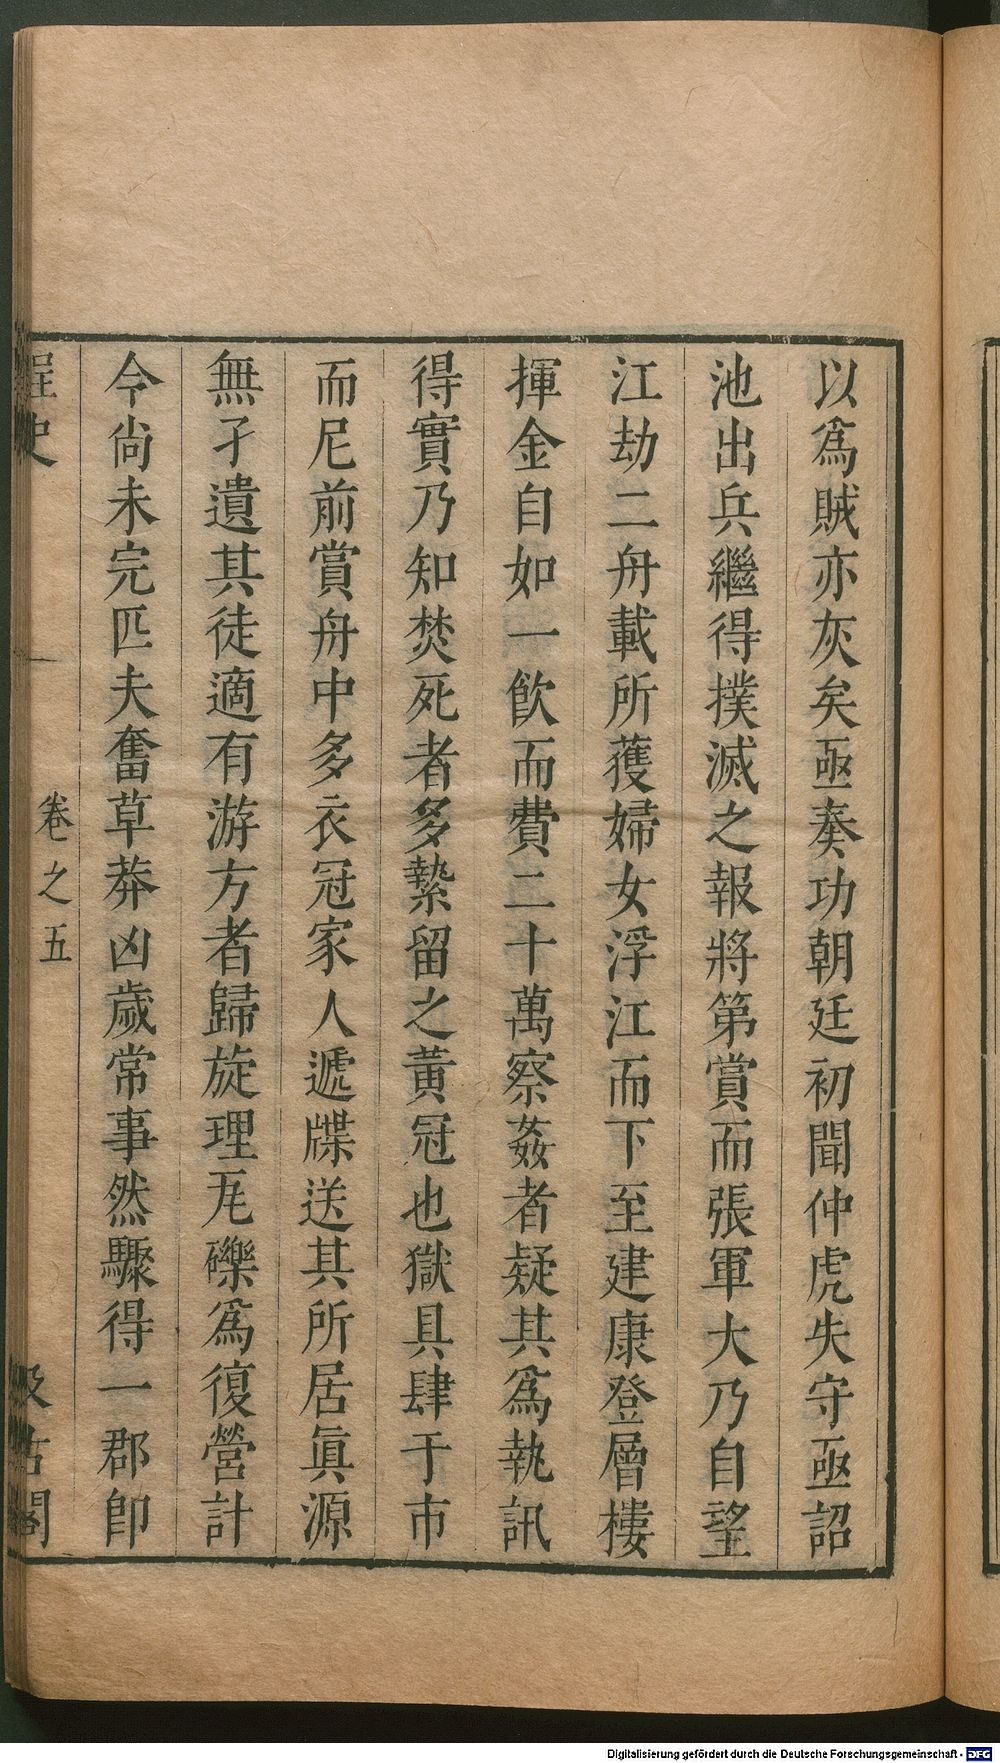 以爲賊亦灰矣亟奏功朝廷初聞仲虎失守亟詔
池出兵繼得撲滅之報將第賞而張軍大乃自望
江劫二舟載所獲婦女浮江而下至建康登層樓
揮金自如一飮而費二十萬察姦者疑其爲執訊
得實乃知焚死者多縶留之黃冠也獄具肆于市
而尼前賞舟中多衣冠家人遞牒送其所居眞源
無孑遺其徒適有游方者歸旋理瓦礫爲復營計
今尚未完匹夫奮草莽凶歲常事然驟得一郡卽
桯史
卷之五
汲古閣
Digitalisierung gefördert durch die Deutsche Forschungsgemeinschaft - DFG